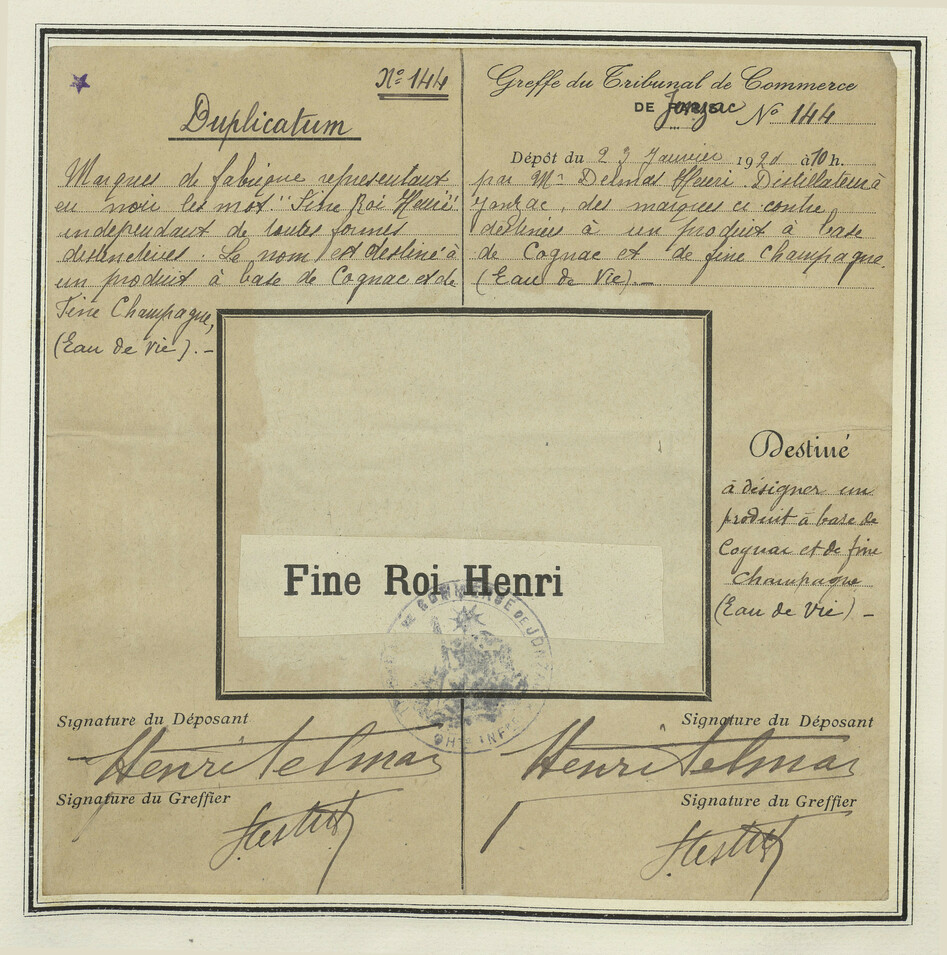 Nº 144
Duplicatum
Marques de fabrique représentant
en noir les mot "Fine Roi Henri"
independant de toutes formes
distinctives. Le nom est destiné à
un produit à base de Cognac et de
Fine Champagne,
(Eau de Vie). —
Greffe du Tribunal de Commerce
DE Jonzac Nº 144
Dépôt du 23 Janvier 1920 à 10 h.
par Mr Delmas Henri. Distillateur à
Jonzac, des marques ci contre
destinées à un produit à base
de Cognac et de fine Champagne.
(Eau de Vie). —
Fine Roi Henri
COMMERCE DE JONZ
CHte INFre
Destiné
à désigner un
produit à base de
Cognac et de fine
Champagne
(Eau de Vie) —
Signature du Déposant
Henri Delmas
Signature du Greffier
Signature du Déposant
Henri Delmas
Signature du Greffier